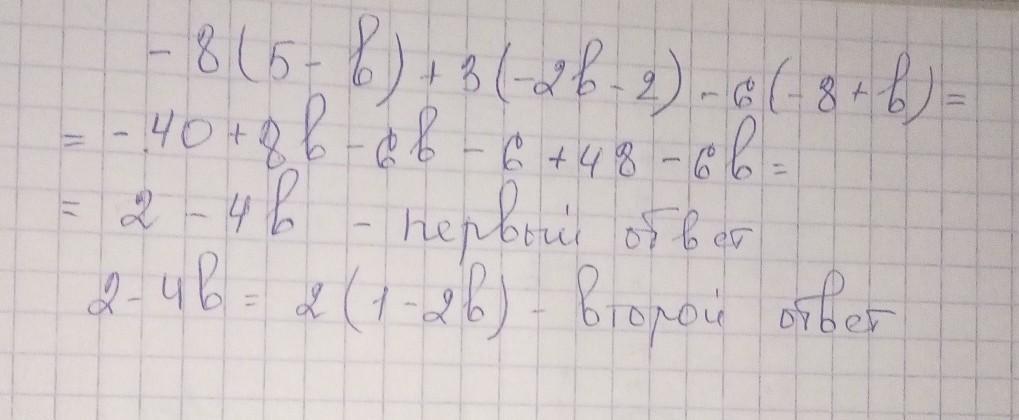 - 8(5 - b) + 3(-2b - 2) - 6(-8 + b) =
= - 40 + 8b - 6b - 6 + 48 - 6b =
= 2 - 4b - первый ответ
2 - 4b = 2(1 - 2b) - второй ответ